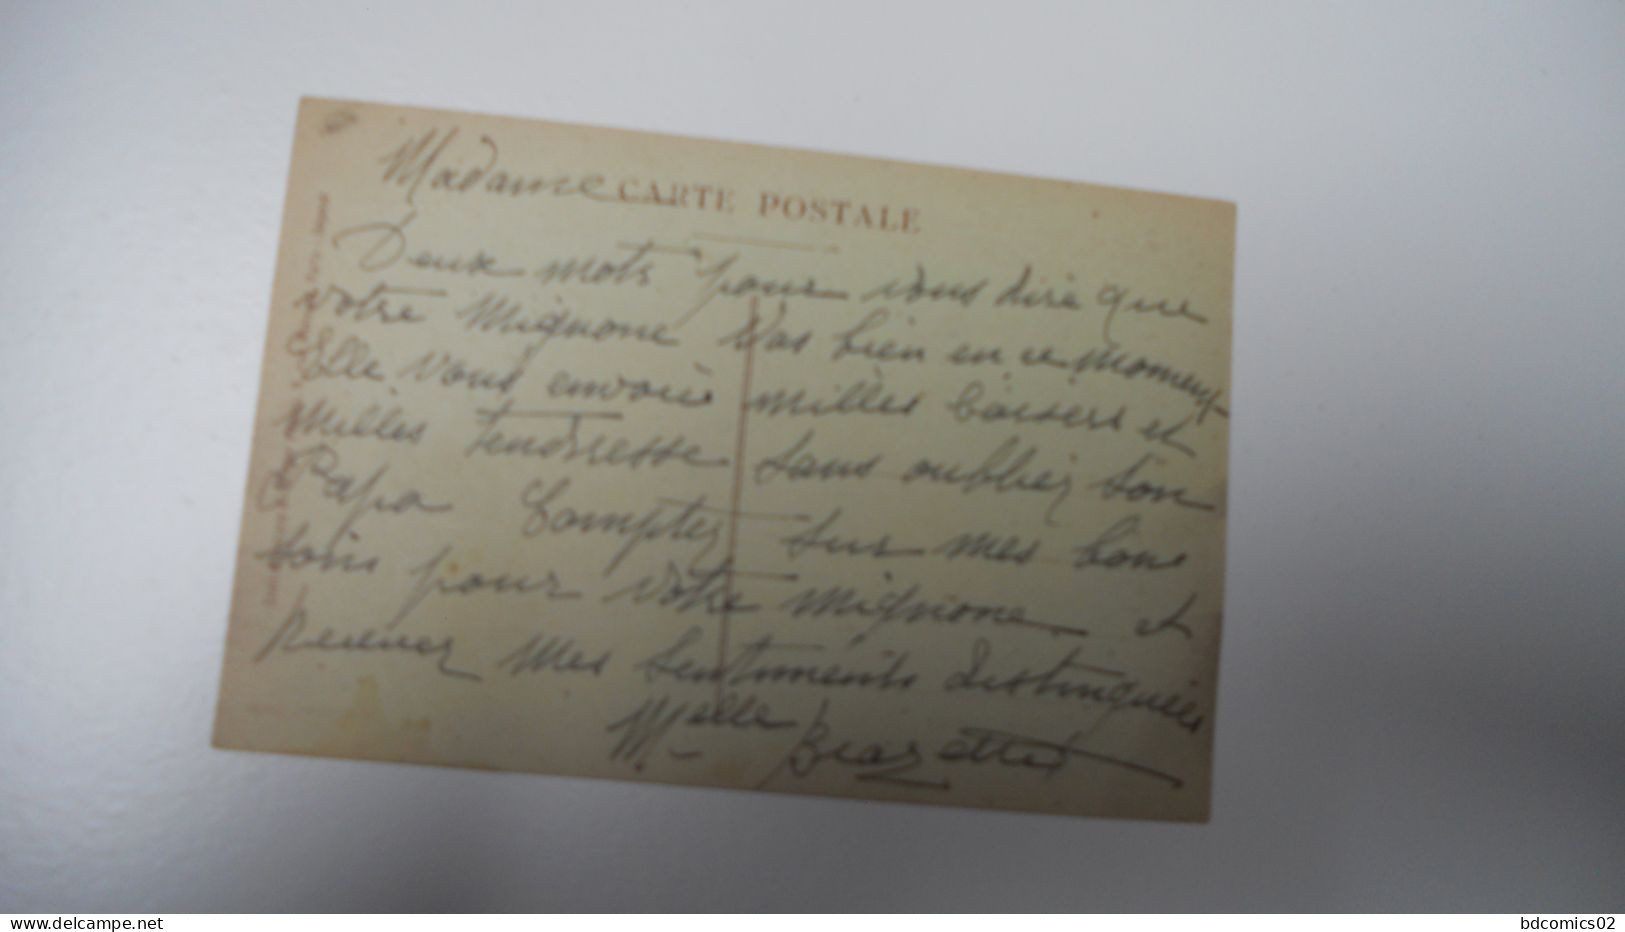 Madame CARTE POSTALE
Deux mots pour vous dire que
votre mignone vas bien en ce moment
Elle vous envoie milles baisers et
milles tendresse sans oubliez son
Papa Comptez sur mes bons
soins pour votre mignone et
recevez mes sentiments distinguées
Melle
delcampe.net
bdcomics02